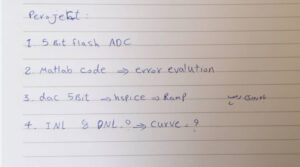 Perojekt :
1 5 Bit flash ADC
2. Matlab code ⇒ error evalution
3. dac 5Bit ⇒ hspice ⇒ Ramp
4. INL & DNL.? ⇒ curve.?